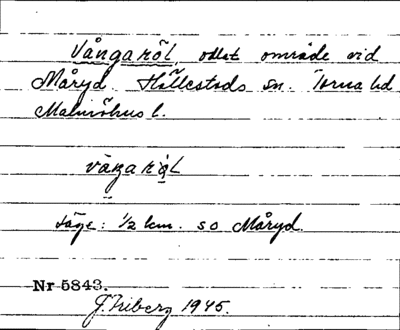 Vångahöl, odlat område vid
Måryd. Hällestads sn. Torna hd
Malmöhus l.
Läge: ½ km. SO Måryd.
Nr 5843.
1945.